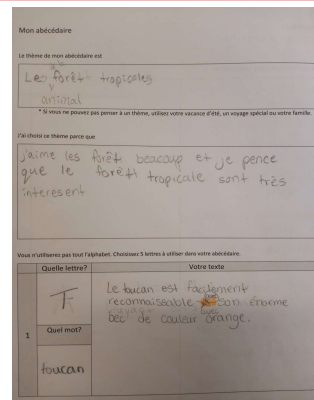 Mon abécédaire
Le thème de mon abécédaire est
Les forêt tropicales
animal
* Si vous ne pouvez pas penser à un thème, utilisez votre vacance d'été, un voyage spécial ou votre famille.
J'ai choisi ce thème parce que
j'aime les forêt beacoup et je pence
que le forêt tropicale sont très
interesent
Vous n'utiliserez pas tout l'alphabet. Choisissez 5 lettres à utiliser dans votre abécédaire.
Quelle lettre? Votre texte
T
Le toucan est facilement
reconnaissable avec son énorme
bec de couleur orange.
1
Quel mot?
toucan